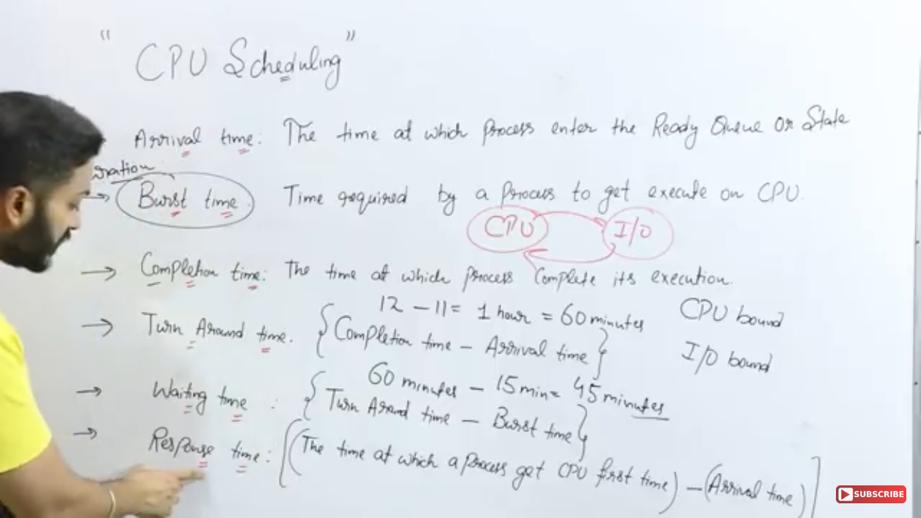 " CPU Scheduling "
Arrival time: The time at which Process enter the Ready Queue or State
ration
→ Burst time Time required by a Process to get execute on CPU.
CPU I/O
→ Completion time: The time at which process Complete its execution.
12 – 11 = 1 hour = 60 minutes CPU bound
→ Turn Around time. {Completion time – Arrival time} I/O bound
60 minutes – 15 min = 45 minutes
→ Waiting time : {Turn Around time – Burst time}
→ Response time: [(The time at which a process get CPU first time) – (Arrival time)]
SUBSCRIBE